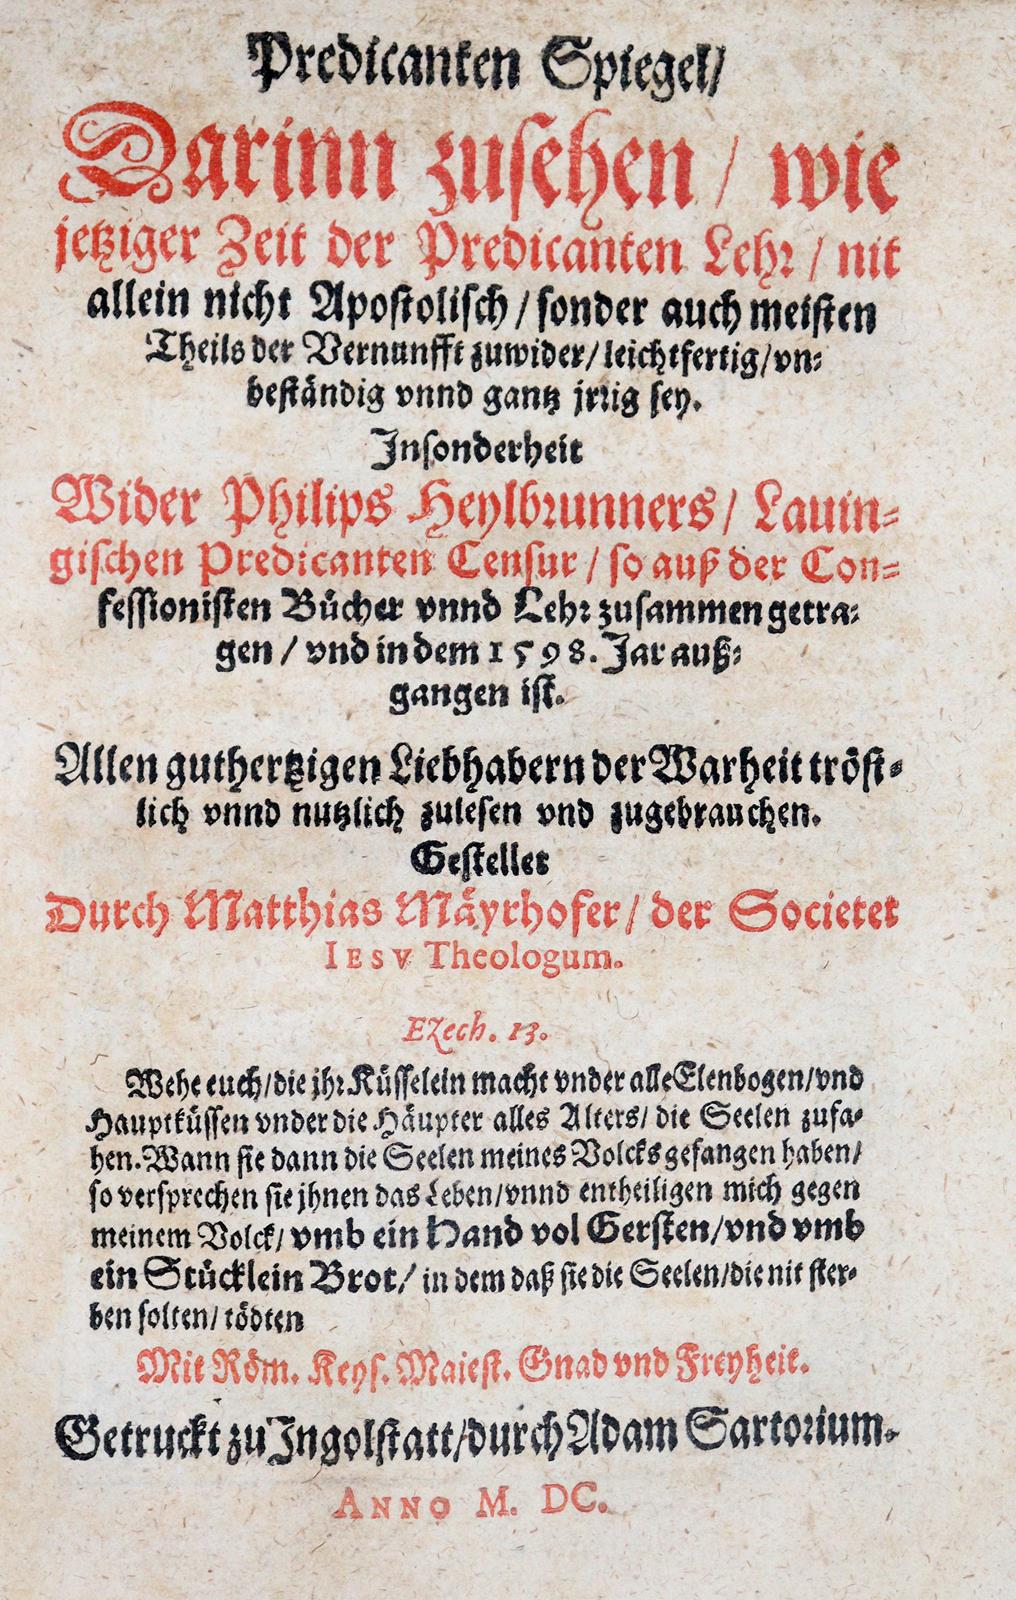 Predicanten Spiegel/
Darinn zusehen / wie
jetziger Zeit der Predicanten Lehr / nit
allein nicht Apostolisch / sonder auch meisten
Theils der Vernunfft zuwider/ leichtfertig/ vn⸗
beständig vnnd gantz jrrig sey.
Jnsonderheit
Wider Philips Heylbrunners/ Lauin⸗
gischen Predicanten Censur / so auß der Con⸗
fessionisten Bücher vnnd Lehr zusammen getra⸗
gen / vnd in dem 1598. Jar auß⸗
gangen ist.
Allen guthertzigen Liebhabern der Warheit tröst⸗
lich vnnd nutzlich zulesen vnd zugebrauchen.
Gestellet
Durch Matthias Mäyrhofer/ der Societet
IESV Theologum.
Ezech. 13.
Wehe euch/ die jhr Küsselein macht vnder alle Elenbogen/ vnd
Hauptküssen vnder die Häupter alles Alters/ die Seelen zufa⸗
hen. Wann sie dann die Seelen meines Volcks gefangen haben/
so versprechen sie jhnen das Leben/ vnnd entheiligen mich gegen
meinem Volck/ vmb ein Hand vol Gersten/ vnd vmb
ein Stücklein Brot/ in dem daß sie die Seelen/ die nit ster⸗
ben solten/ tödten
Mit Röm. Keys. Maiest. Gnad vnd Freyheit.
Getruckt zu Jngolstatt/ durch Adam Sartorium.
ANNO M. DC.